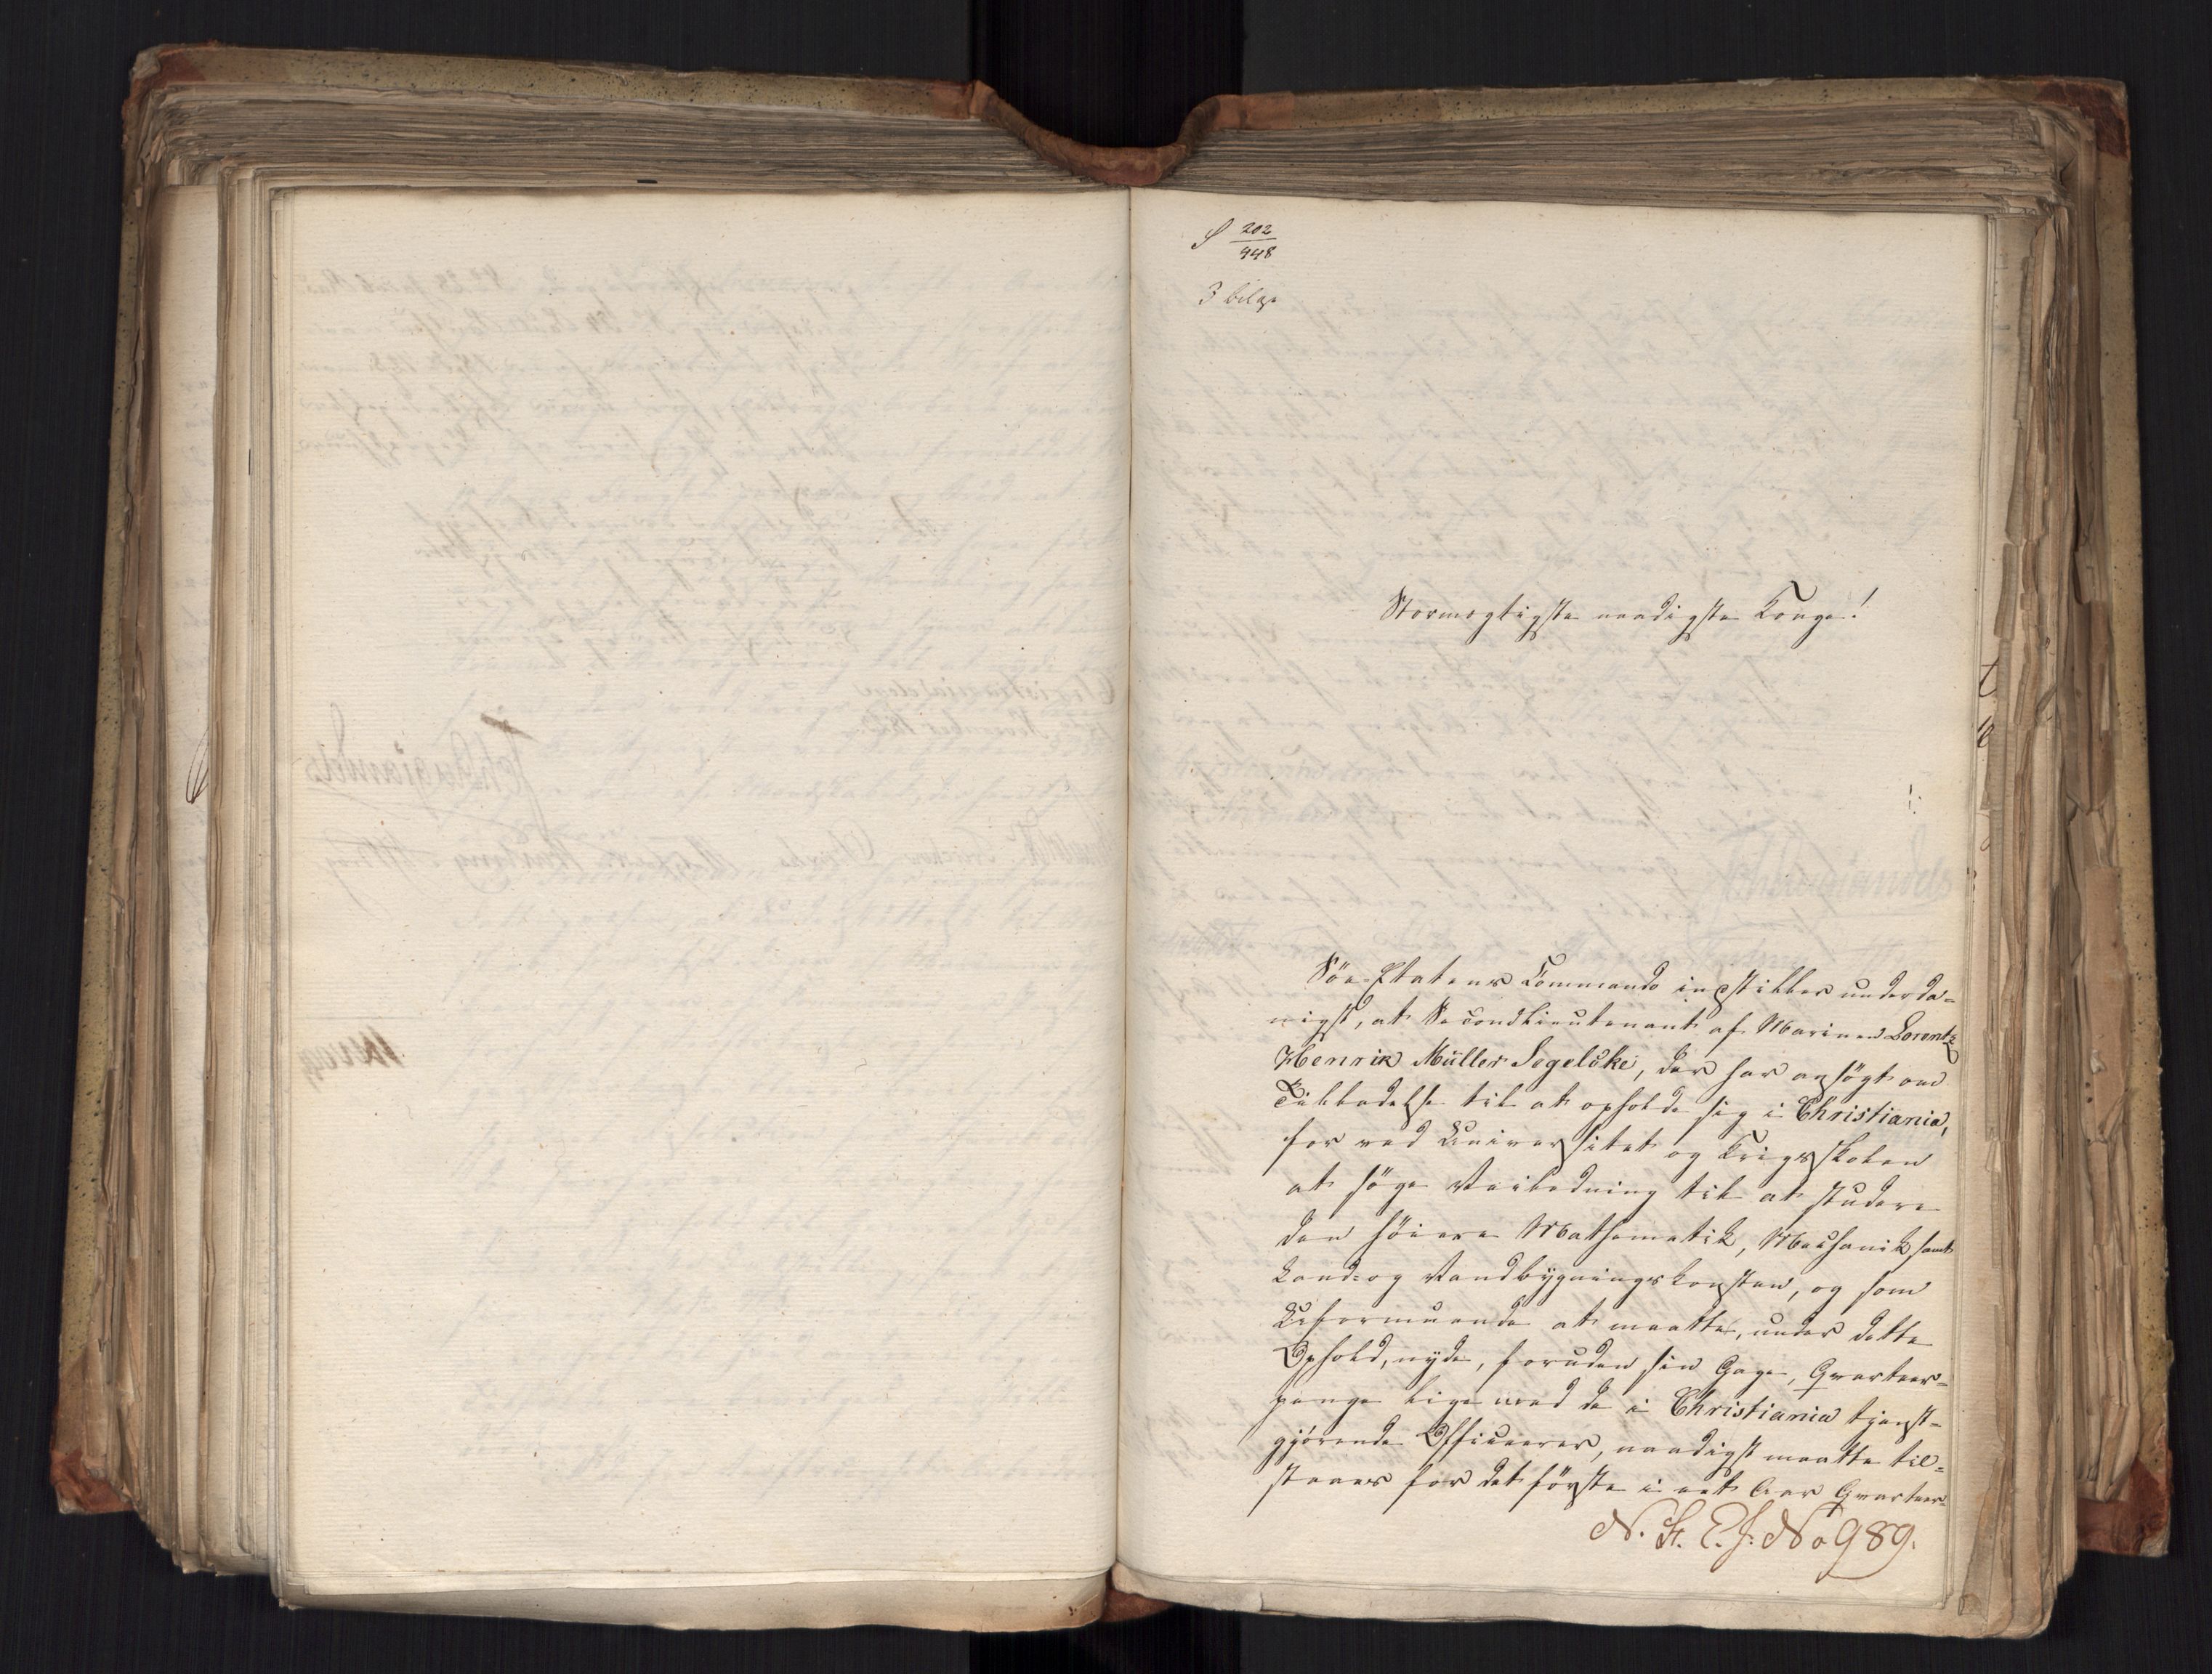 S 202/448
3 bilge
Stormægtigste naadigste Konge!
Söe-Etatens Commando indstiller underda=
nigst, at Secondlieutenant af Marinen Lorentz
Henrik Müller Segelcke, der har ansögt om
Tilladelse til at opholde sig i Christiania,
for ved Universitet og Krigsskolen
at söge Veiledning til at studere
den höiere Mathematik, Mechanik samt
Land- og Vandbygningskonsten, og som
Uformuende at maatte, under dette
Ophold, nyde, foruden sin Gage, Qvarteer=
penge lige med de i Christiania tjenst=
gjörende Officierer, naadigst maatte til=
staaes for det förste i eet Aar Qvarteer-
N. St. E. J: No 989.